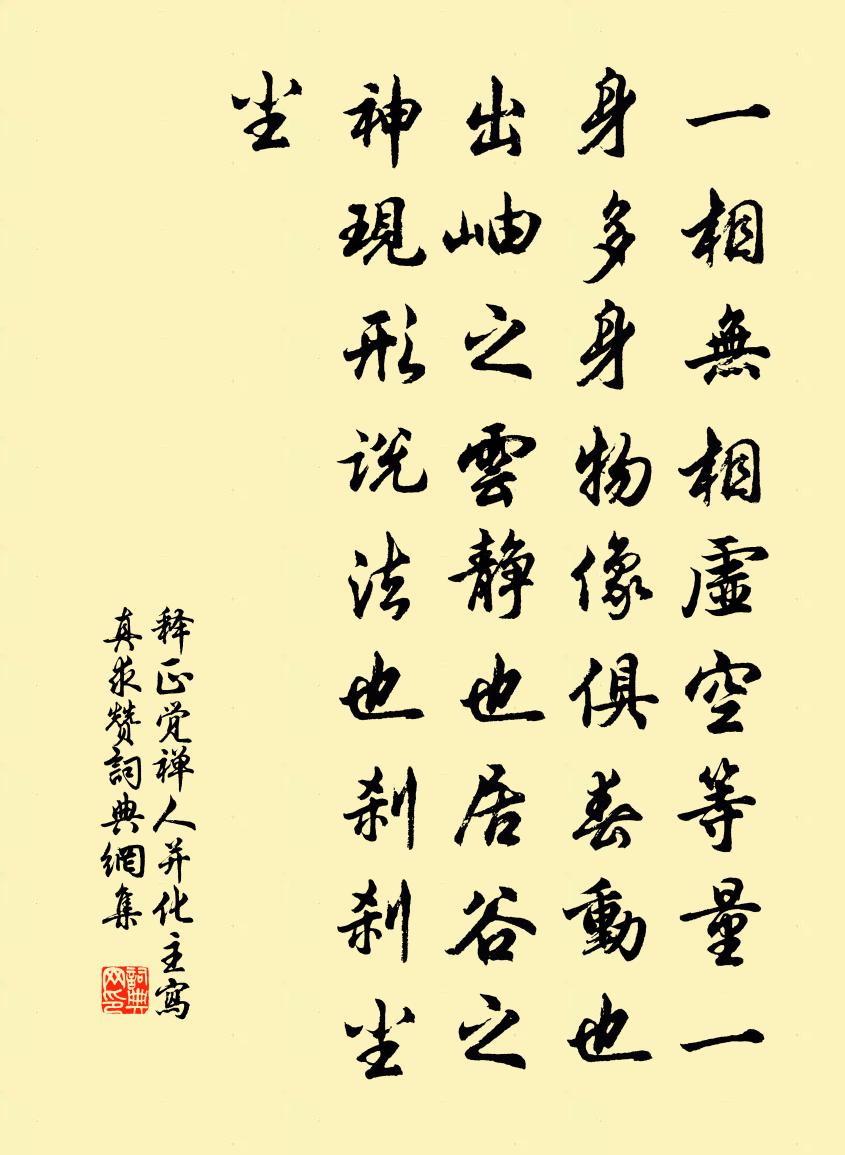 一相無相虛空等量一
身多身物像俱春動也
出岫之雲静也居谷之
神現形说法也刹刹尘
尘
释正觉禅人并化主寫
真求赞詞典網集
詞典网印